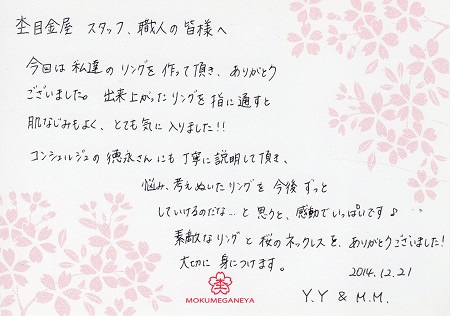 杢目金屋 スタッフ、職人の皆様へ
今回は私達のリングを作って頂き、ありがとう
ございました。出来上がったリングを指に通すと
肌なじみもよく、とても気に入りました!!
コンシェルジュの徳永さんにも丁寧に説明して頂き、
悩み、考えぬいたリングを今後ずっと
していけるのだな…と思うと、感動でいっぱいです♪
素敵なリングと桜のネックレスを、ありがとうございました!
大切に身につけます。
2014.12.21
Y.Y & M.M.
杢
MOKUMEGANEYA